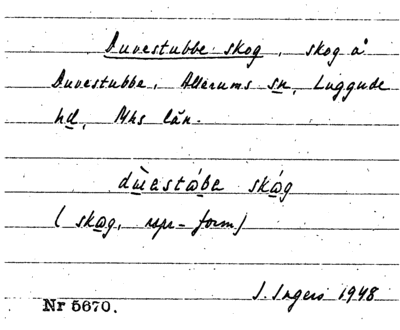 Duvestubbe skog, skog å
Duvestubbe, Allerums sn, Luggude
hd, Mhs län.
dùestωbe skωg
(skωg, rspr-form)
I. Ingers 1948
Nr 5670.